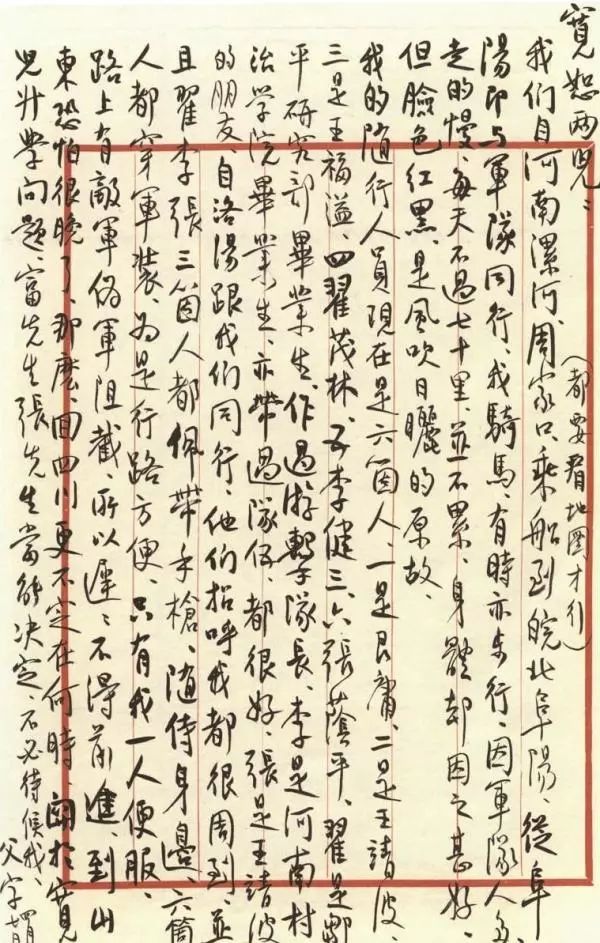 寬恕兩兒：
我们自河南漯河、周家口、乘船到皖北阜陽、從阜
（都要看地图才行）
陽即与軍隊同行、我騎馬、有時亦步行、因軍隊人多
走的慢、每天不過七十里、並不累、身體却因之甚好、
但臉色紅黑、是風吹日曬的原故、
我的随行人員現在是六箇人、一是艮庸、二是王靖波、
三是王福溢、四翟茂林、五李健三、六張蔭平、翟是鄒
平研究部畢業生、作過游擊隊長、李是河南村
治学院畢業生、亦带過隊伍、都很好、張是王靖波
的朋友、自洛陽跟我们同行、他们招呼我都很周到、並
且翟李張三箇人都佩带手槍、随侍身邊、六箇
人都穿軍裝、为是行路方便、只有我一人便服、
路上有敵軍偽軍阻截、所以遲遲不得前進、到山
東恐怕很晚了、那麽、回四川更不定在何時、關於寬
兒升学问題、富先生張先生當能决定、不必待候我、
父字